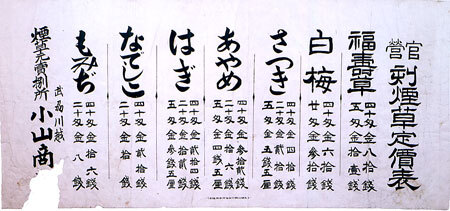 官営 刻煙草定價表
福壽草
四十匁金八拾銭
五匁金拾壹銭
白梅
四十匁金六拾銭
廿匁金參拾銭
さつき
四十匁金
二十匁金
五匁金
あやめ
四十匁金參拾貳銭
二十匁金拾六銭
五匁金四銭五厘
はぎ
四十匁金貳拾四銭
二十匁金拾貳銭
五匁金參銭五厘
なでしこ
四十匁金貳拾銭
二十匁金拾銭
もみぢ
四十匁金拾六銭
二十匁金八銭
武州川越
煙草元賣捌所 小山商